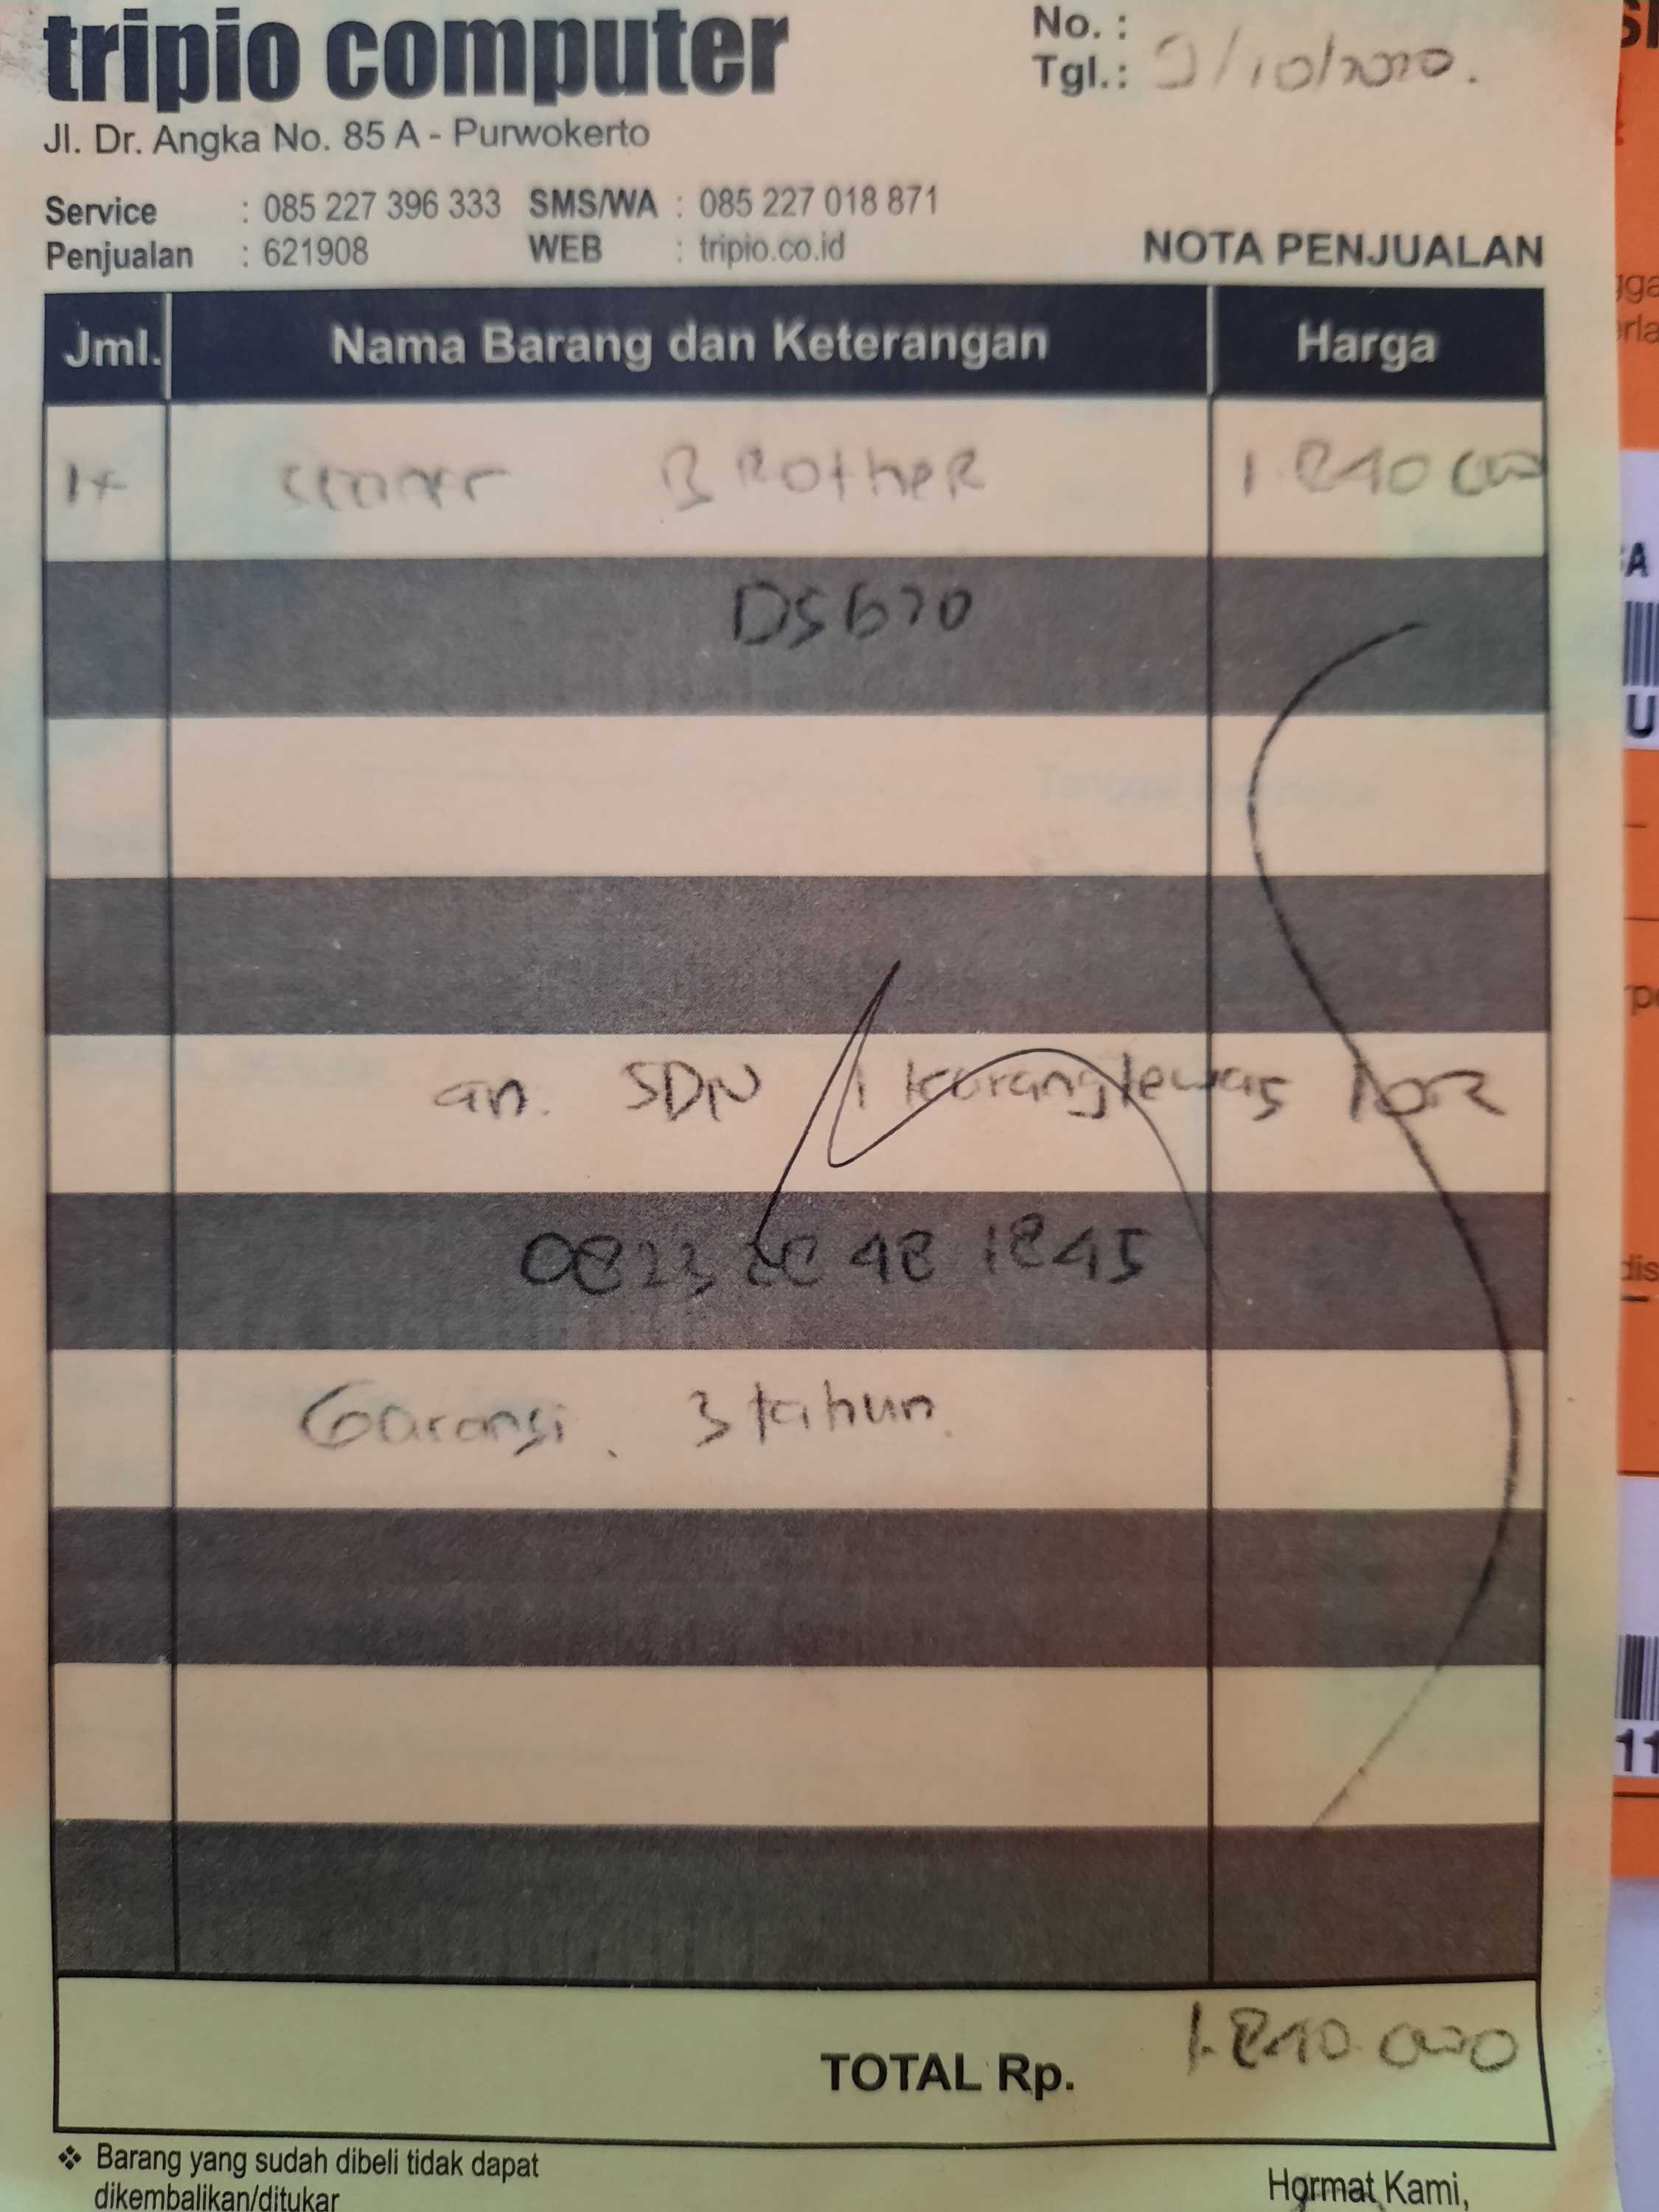 tripio computer
No. :
Tgl.: 9/10/2020.
Jl. Dr. Angka No. 85 A - Purwokerto
Service : 085 227 396 333 SMS/WA : 085 227 018 871
Penjualan : 621908 WEB : tripio.co.id
NOTA PENJUALAN
Jml. Nama Barang dan Keterangan Harga
1x Scaner BRotheR 1.840 000
DS620
an. SDN 1 karanglewas lor
0823 48 1845
Garansi. 3 tahun.
TOTAL Rp. 1.840.000
❖ Barang yang sudah dibeli tidak dapat
dikembalikan/ditukar
Hormat Kami,
A
U
11